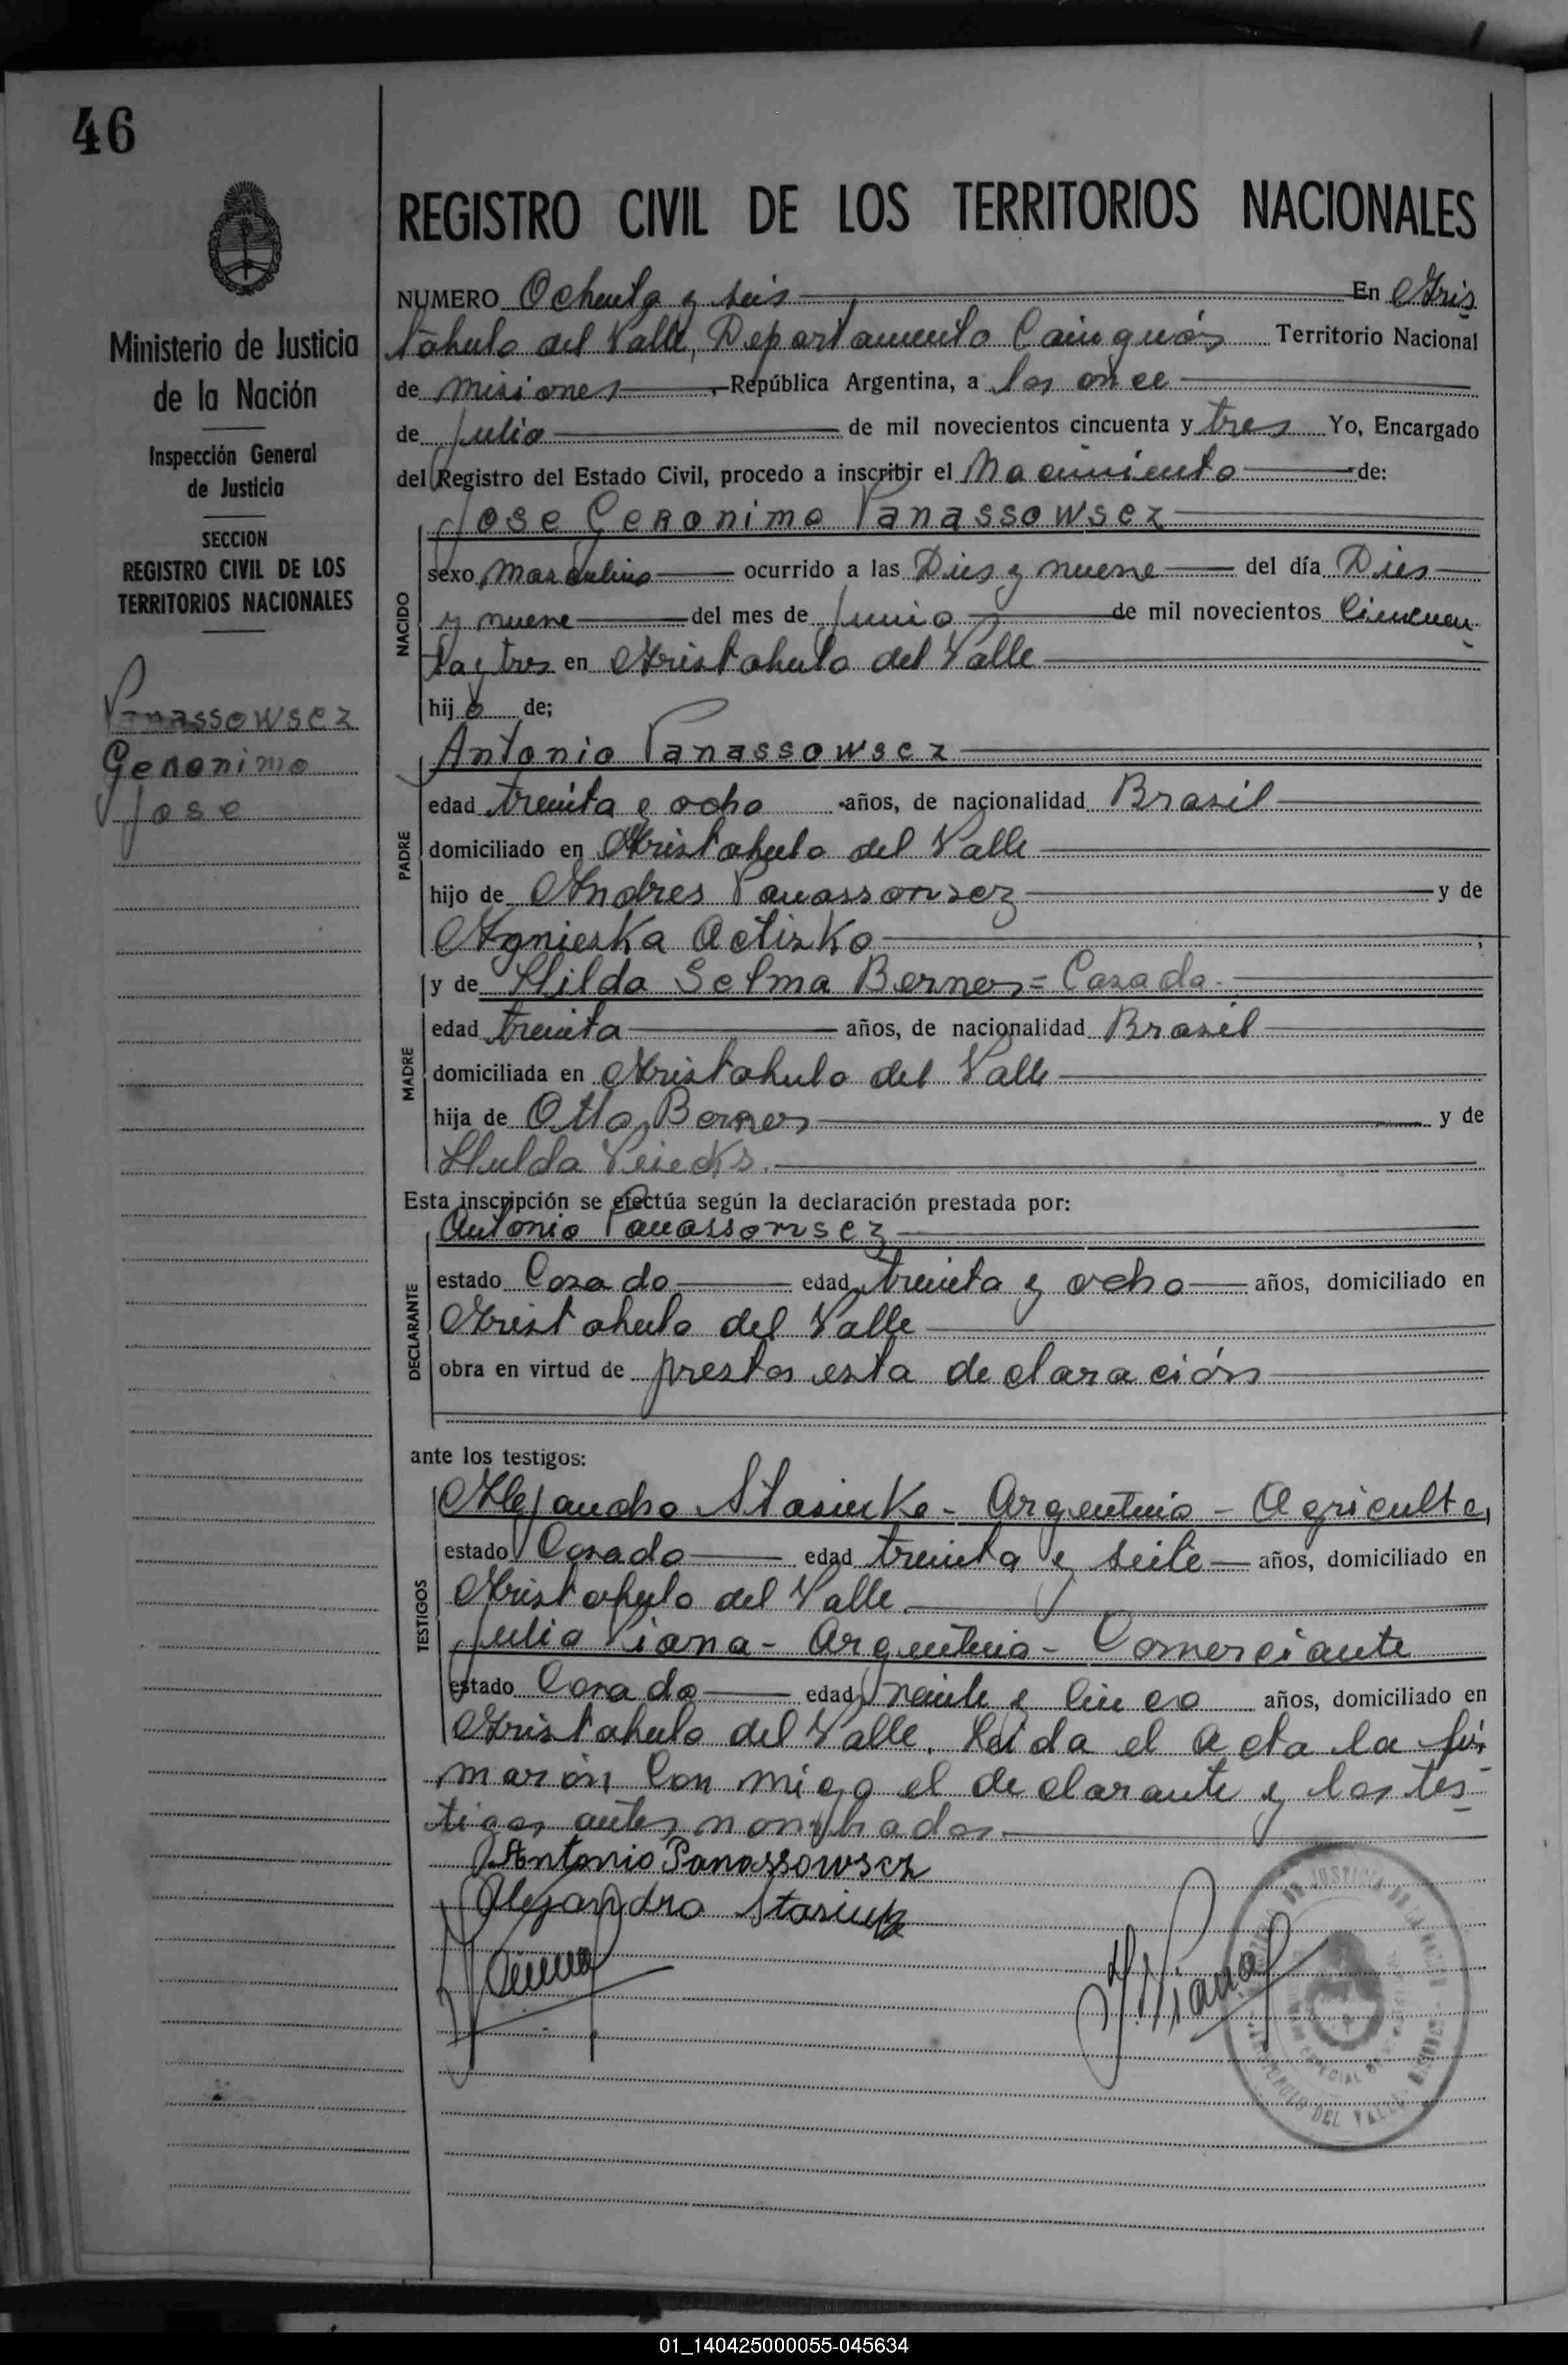 46
Ministerio de Justicia
de la Nación
Inspección General
de Justicia
SECCION
REGISTRO CIVIL DE LOS
TERRITORIOS NACIONALES
Panassowscz
Geronimo
Jose
REGISTRO CIVIL DE LOS TERRITORIOS NACIONALES
NUMERO Ochenta y seis En Aris
tóbulo del Valle, Departamento Cainguás Territorio Nacional
de Misiones, República Argentina, a los once
de Julio de mil novecientos cincuenta y tres Yo, Encargado
del Registro del Estado Civil, procedo a inscribir el Nacimiento de:
Jose Geronimo Panassowscz
NACIDO
sexo Masculino ocurrido a las Dies y nueve del día Dies
y nueve del mes de Junio de mil novecientos Cincuen
ta y tres en Aristobulo del Valle
hijo de;
Antonio Panassowscz
PADRE
edad treinta y ocho años, de nacionalidad Brasil
domiciliado en Aristobulo del Valle
hijo de Andres Panassowscz y de
Agnieska Actisko;
y de Hilda Selma Berner = Casada.
MADRE
edad treinta años, de nacionalidad Brasil
domiciliada en Aristobulo del Valle
hija de Otto Berner y de
Hulda
Esta inscripción se efectúa según la declaración prestada por:
Antonio Panassowscz
DECLARANTE
estado Casado edad treinta y ocho años, domiciliado en
Aristobulo del Valle
obra en virtud de prestar esta declaración
ante los testigos:
Alejandro Stasiuk - Argentino - Agriculto,
TESTIGOS
estado Casado edad treinta y seite años, domiciliado en
Aristobulo del Valle.
Julio Piana - Argentino - Comerciante
estado Casado edad Veinte y Cinco años, domiciliado en
Aristobulo del Valle. Leida el Acta la fir
maron Con migo el declarante y los tes-
tigos antes nombrados
Antonio Panassowscz
Alejandro Stasiuk
J. Piana
01_140425000055-045634